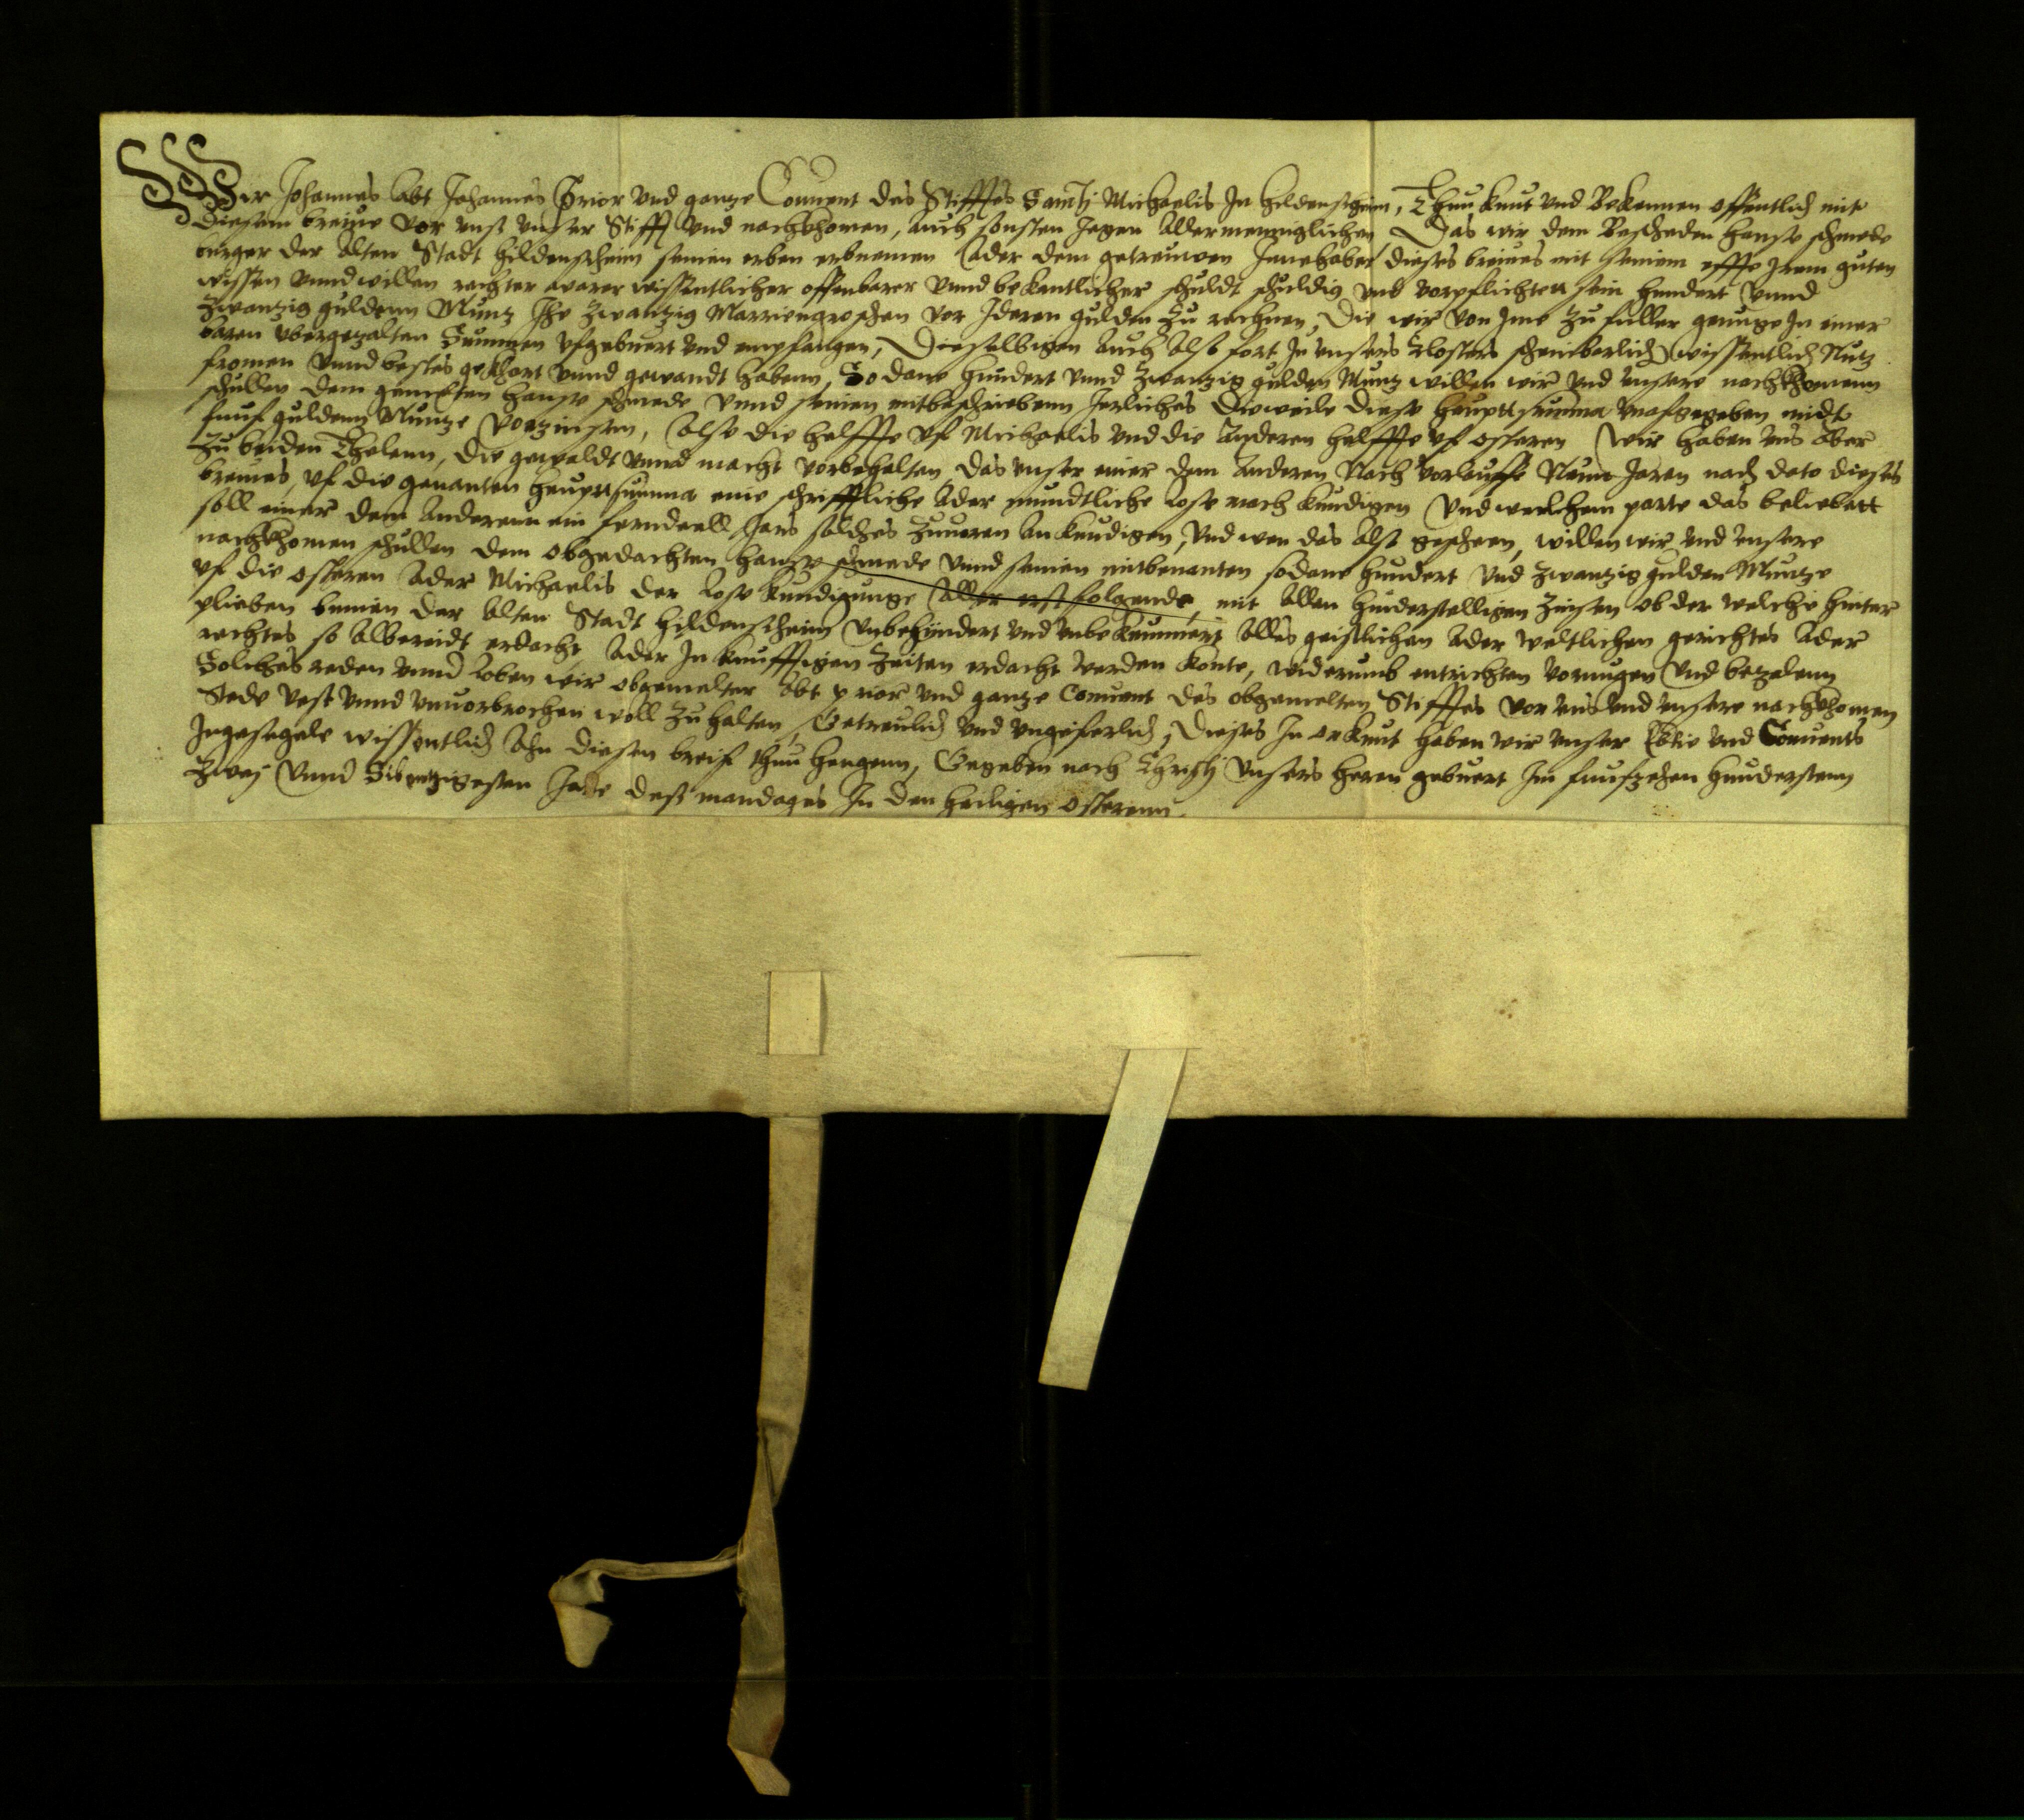 Wir Johannes Abt Johannes Prior vnd gantze Conuent des Stifftes Sancti Michaelis In Hildenscheim, Thun kunt vnd Bekennen offentlich mit
Diesem breiue vor vnß vnser Stifft vnd nachkhomen, auch sonsten Jegen Allermenniglichen Das wir dem Bescheden Hanse schmede
burger der Alten Stadt Hildenscheim seinen erben erbnemen Ader dem getreuwen Innehaber dieses breiues mit seinem effte Irem guten
wissen vnnd willen rechter warer wissentlicher offenbarer vnnd bekantlicher schuldt schuldig vnd vorpflichtett sein hundert vnnd
Zwantzig guldenn Muntz Jhe Zwantzig Marriengroschen vor Ideren gulden Zu rechnen, Die wir von Ime Zu fuller genuge In einer
baren vbergezalten Summen vfgebuert vnd empfangen, Dieselbigen Auch Alß fort In vnsers Klosters scheinberlich wissentlich Nutz
fromen vnnd bestes gekhart vnnd gewandt habenn, So dane hundert vnnd Zwantzig gulden Muntz willen wir vnd vnsere nachkhomenn
schullen dem gemelten Hanse schmede vnnd seinen mitbeschriebenn Jerliches Dieweile diese heuptt summa vnafgegeben midt
funf guldenn Muntze Vorzinsen, Alse die helffte vf Michaelis vnd die Anderen helffte vf osteren Wir haben vns Aber
Zu beiden Theilenn, die gewaldt vnnd macht vorbehalten das vnser einer dem Anderen Nach vorlauffe Neun Jaren nach dato dieses
breiues vf die genanten heupttsumma eine schrifftliche Ader mundtliche lose mach kundigen Vnd welchem parte das beliebett
soll einer dem Anderenn ein ferndeell Jars solches Zuuoren An kundigen, Vnd wen das Alß gescheen, willen wir vnd vnsere
nachkhomen schullen dem obgedachten Hanse schmede vnnd seinen mitbenanten sodane hundert vnd Zwantzig gulden Muntze
vf die osteren Ader Michaelis der lose kundigunge Aller erst folgende, mit Allen hinderstelligen Zinsen ob der welche hinter
plieben binnen der Alten Stadt Hildenscheim vnbehindert vnd vnbekummert Alles geistlichen Ader weltlichen gerichtes Ader
rechtes so Albereidt erdacht Ader In kunfftigen Zeiten erdacht werden konte, widerumb entrichten vornugen vnd bezalenn
Solches reden vnnd loben wir obgemelter Abt prior vnd gantze Conuent des obgemelten Stifftes vor vns vnd vnsere nachkhomen
Stede vest vnnd vnuorbrochen woll Zu halten, Getreulich vnd vngeferlich, Dieses In orkunt haben wir vnser Ebtie vnd Conuents
Ingesegele wissentlich Ahn diesen breif thun hengenn, Gegeben nach Christi vnsers heren gebuert Im funfzehen hunderstenn
Zwej vnnd Sibentzigesten Jare deß mandages In den heiligen osterenn.